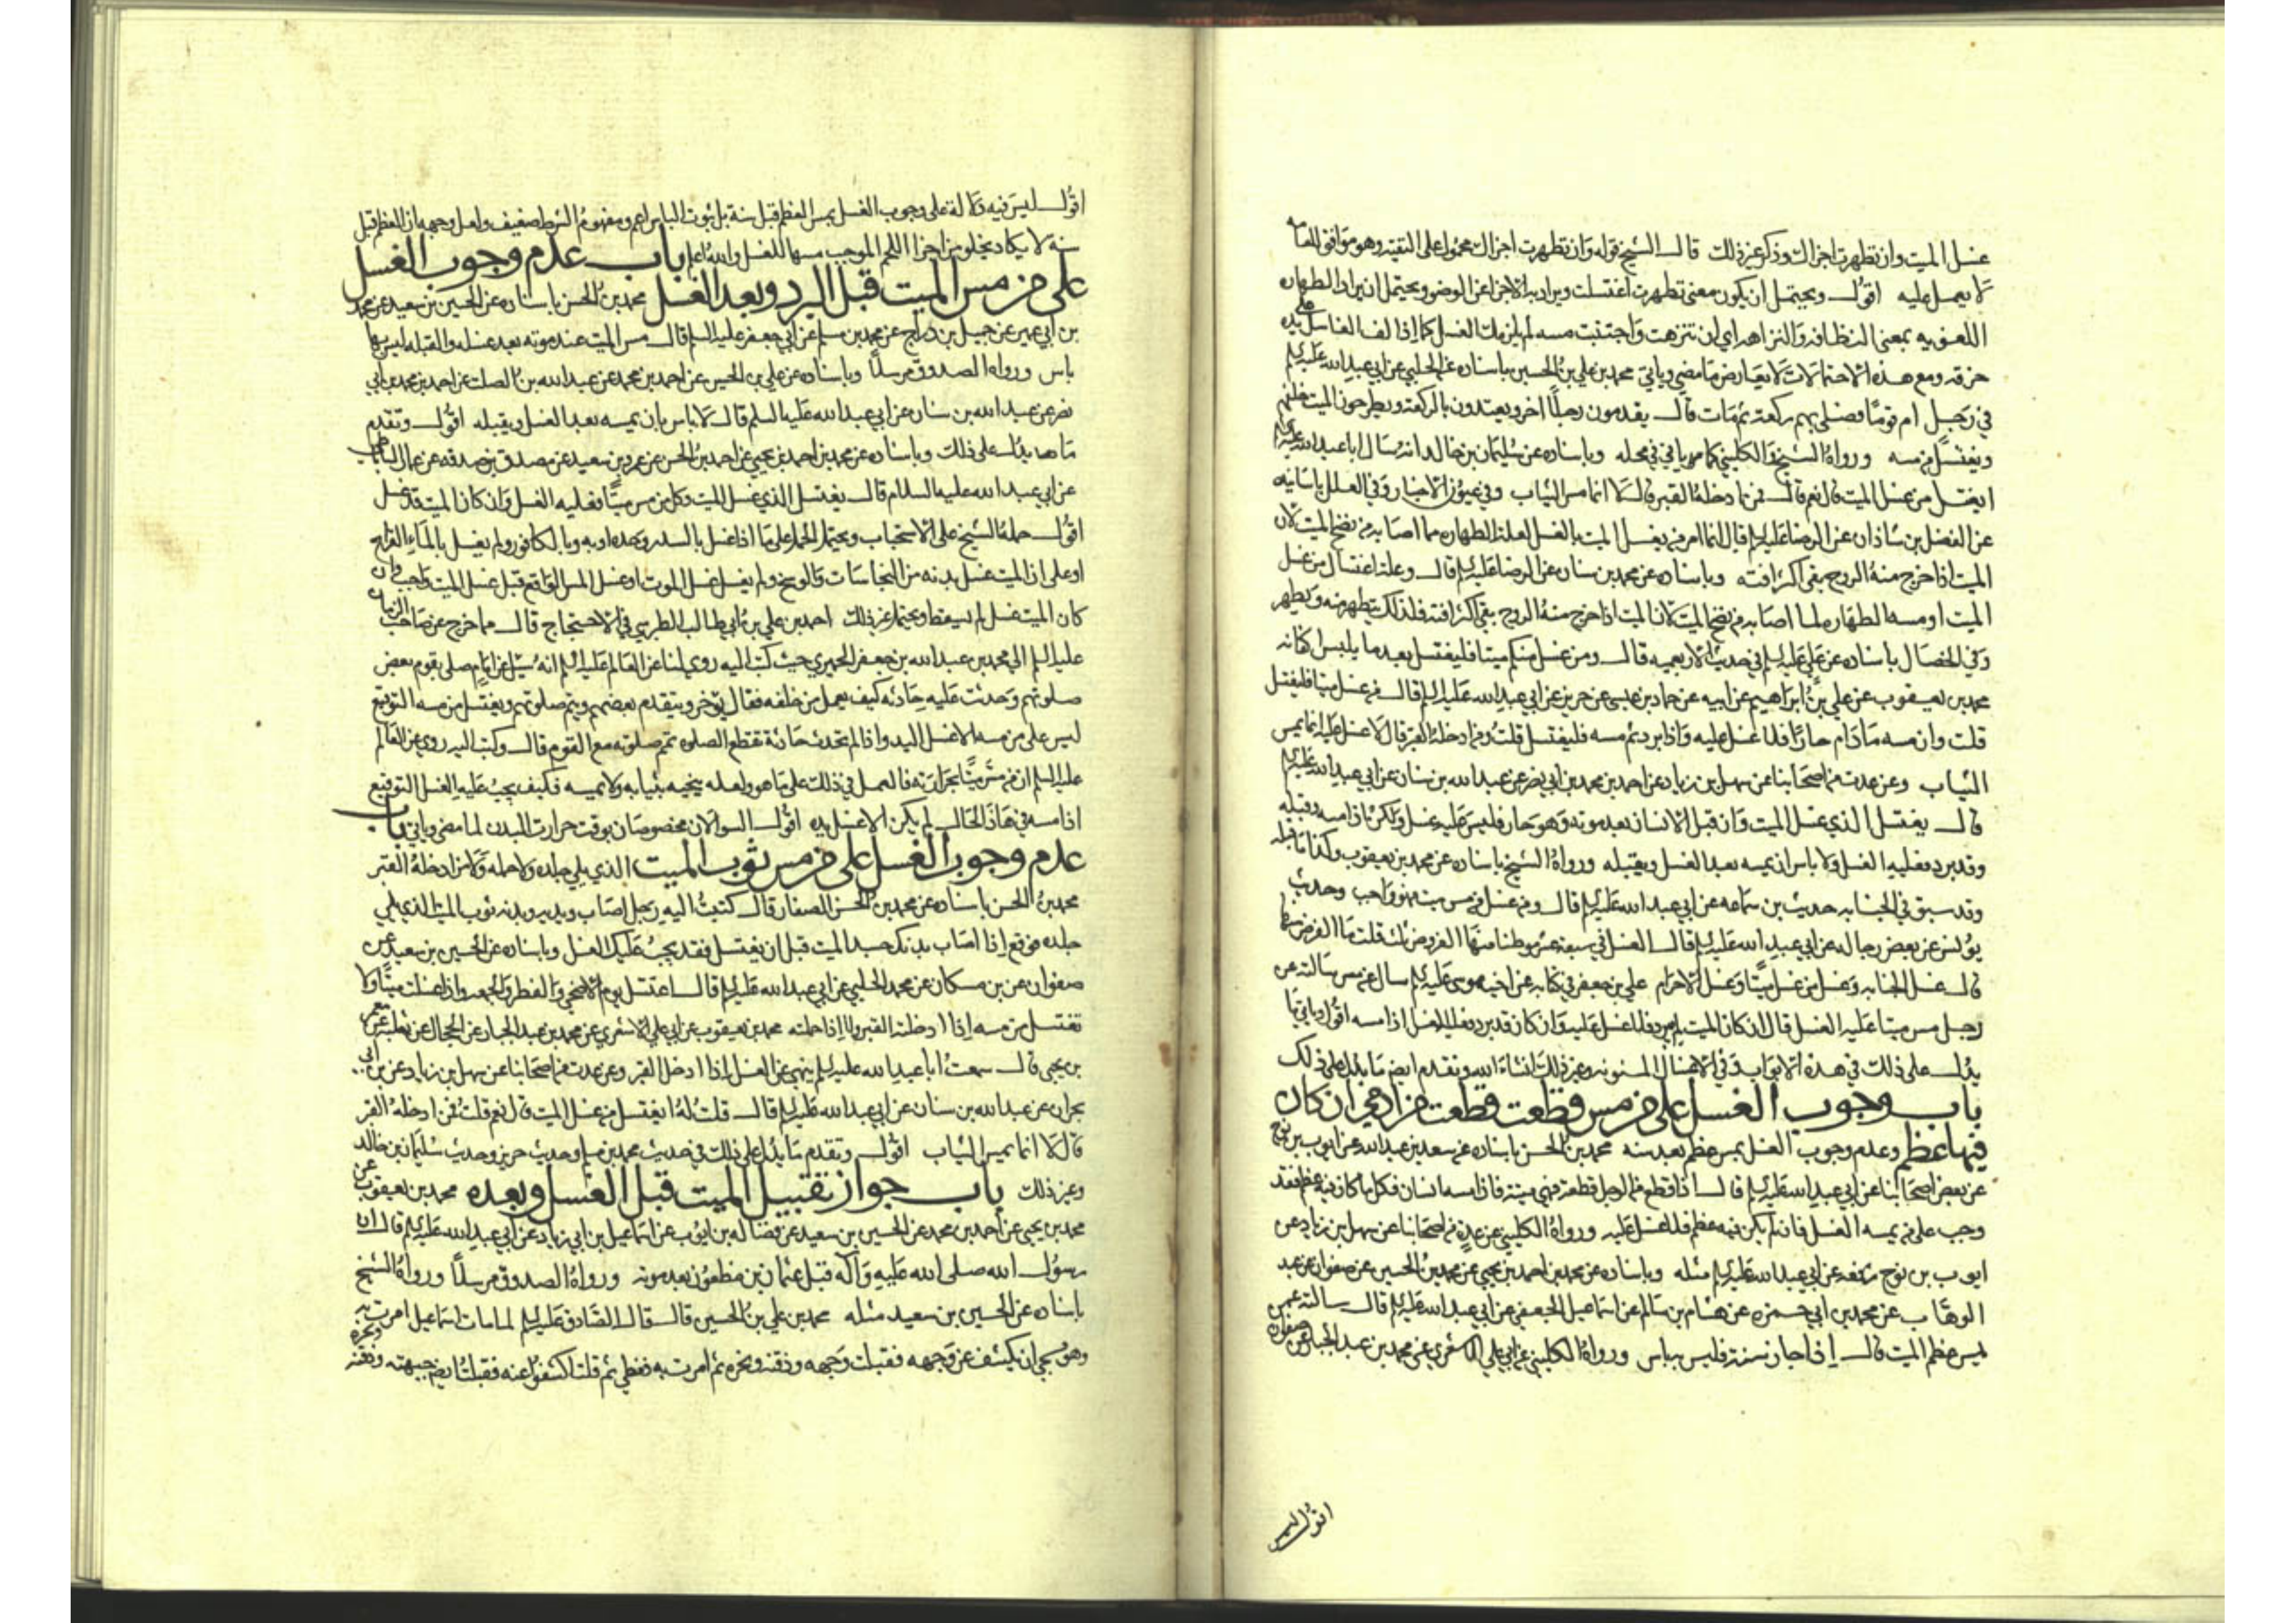 غسل الميت وان تطهرت اجزاك وذكر غير ذلك قال الشيخ قوله وان تطهرت اجزاك محمول على التقيه وهو موافق للعامه
لا يعمل عليه اقول ويحتمل ان يكون معنى تطهرت اغتسلت ويراد به الاجزا عن الوضو ويحتمل ان يراد الطهاره
اللغويه بمعنى النظافه والنزاهه اي ان تنزهت واجتنبت مسه لم يلزمك الغسل كما اذا لف الغاسل على يده
خرقه ومع هذه الاحتمالات لا يعارض ما مضى وياتي محمد بن علي بن الحسين باسناده عن الحلبي عن ابي عبد الله عليه السلم
في رجل ام قوما فصلى بهم ركعة ثم مات قال يقدمون رجلا اخر ويعتدون بالركعة ويطرحون الميت خلفهم
ويغتسل من مسه ورواه الشيخ والكليني كما ياتي في محله وباسناده عن سليمان بن خالد انه سال ابا عبد الله عليه السلم
ايغتسل من غسل الميت قال نعم قال فمن ادخله القبر قال لا انما مس الثياب وفي عيون الاخبار وفي العلل باسانيده
عن الفضل بن شاذان عن الرضا عليه السلم قال انما امر من يغسل الميت بالغسل لعلة الطهاره مما اصابه من نضح الميت لان
الميت اذا خرج منه الروح بقي اكثر افته وباسناده عن محمد بن سنان عن الرضا عليه السلم قال وعلة اغتسال من غسل
الميت او مسه الطهاره لما اصابه من نضح الميت لان الميت اذا خرج منه الروح بقي اكثر افته فلذلك يتطهر منه ويطهر
وفي الخصال باسناده عن علي عليه السلم في حديث الاربعميه قال ومن غسل منكم ميتا فليغتسل بعد ما يلبس اكفانه
محمد بن يعقوب عن علي بن ابراهيم عن ابيه عن حماد بن عيسى عن حريز عن ابي عبد الله عليه السلم قال من غسل ميتا فليغتسل
قلت وان مسه ما دام حارا فلا غسل عليه واذا برد ثم مسه فليغتسل قلت ومن ادخله القبر قال لا غسل عليه انما يمس
الثياب وعن عدت من اصحابنا عن سهل بن زياد عن احمد بن محمد بن ابي نصر عن عبد الله بن سنان عن ابي عبد الله عليه السلم
قال يغتسل الذي غسل الميت وان قبل الانسان بعد موته وهو حار فليس عليه غسل ولكن اذا مسه وقبله
وقد برد فعليه الغسل ولا باس ان يمسه بعد الغسل ويقبله ورواه الشيخ باسناده عن محمد بن يعقوب وكذا ما قبله
وقد سبق في الجنابه حديث بن سماعه عن ابي عبد الله عليه السلم قال وغسل من مس ميت واجب وحديث
يونس عن بعض رجاله عن ابي عبد الله عليه السلم قال الغسل في سبعة عشر موطنا منها الفرض ثلث قلت ما الفرض منها
قال غسل الجنابه وغسل من غسل ميتا وغسل الاحرام علي بن جعفر في كتابه عن اخيه موسى عليه السلم قال سالته عن
رجل مس ميتا عليه الغسل قال ان كان الميت لم يبرد فلا غسل عليه وان كان قد برد فعليه الغسل اذا مسه اقول وياتي ما
يدل على ذلك في هذه الابواب وفي الاغسال المسنونه وغير ذلك انشاء الله وتقدم ايضا ما يدل على ذلك
باب وجوب الغسل على من مس قطعت قطعت من ادمي ان كان
فيها عظم وعدم وجوب الغسل بمس عظم بعد سنه محمد بن الحسن باسناده عن سعد بن عبد الله عن ايوب بن نوح
عن بعض اصحابنا عن ابي عبد الله عليه السلم قال اذا قطع من الرجل قطعة فهي ميتة فاذا مسه انسان فكل ما كان فيه عظم فقد
وجب على من يمسه الغسل فان لم يكن فيه عظم فلا غسل عليه ورواه الكليني عن عدة من اصحابنا عن سهل بن زياد عن
ايوب بن نوح رفعه عن ابي عبد الله عليه السلم مثله وباسناده عن محمد بن احمد بن يحيى عن محمد بن الحسين عن صفوان عن عبد
الوهاب عن محمد بن ابي حمزه عن هشام بن سالم عن اسماعيل الجعفي عن ابي عبد الله عليه السلم قال سالته عمن
يمس عظم الميت قال اذا جاز سنة فليس به باس ورواه الكليني عن ابي علي الاشعري عن محمد بن عبد الجبار عن صفوان
اقول ليس
اقول ليس فيه دلالة على وجوب الغسل بمس العظم قبل سنة بل ثبوت الباس اعم ومفهوم الشرط ضعيف ولعل وجهه ان العظم قبل
سنه لا يكاد يخلو من اجزا اللحم الموجب مسها للغسل والله اعلم باب عدم وجوب الغسل
على من مس الميت قبل البرد وبعد الغسل محمد بن الحسن باسناده عن الحسين بن سعيد عن محمد
بن ابي عمير عن جميل بن دراج عن محمد بن مسلم عن ابي جعفر عليه السلم قال مس الميت عند موته بعد غسله والقبله ليس بها
باس ورواه الصدوق مرسلا وباسناده عن علي بن الحسين عن احمد بن محمد عن عبد الله بن الصلت عن احمد بن محمد بن ابي
نصر عن عبد الله بن سنان عن ابي عبد الله عليه السلم قال لا باس بان يمسه بعد الغسل ويقبله اقول وتقدم
ما يدل على ذلك وباسناده عن محمد بن احمد بن يحيى عن احمد بن الحسن عن عمرو بن سعيد عن مصدق بن صدقه عن عمار الساباطي
عن ابي عبد الله عليه السلام قال يغتسل الذي غسل الميت وكل من مس ميتا فعليه الغسل وان كان الميت قد غسل
اقول حمله الشيخ على الاستحباب ويحتمل الحمل على ما اذا غسل بالسدر وحده او به وبالكافور ولم يغسل بالماء القراح
او على ان الميت غسل بدنه من النجاسات والوسخ ولم يغسل غسل الموت او غسل المس الواقع قبل غسل الميت واجب وان
كان الميت غسل لم يسقط ويحتمل غير ذلك احمد بن علي بن ابي طالب الطبرسي في الاحتجاج قال مما خرج عن صاحب الزمان
عليه السلم الى محمد بن عبد الله بن جعفر الحميري حيث كتب اليه روي لنا عن العالم عليه السلم انه سئل عن امام صلى بقوم بعض
صلوتهم وحدثت عليه حادثه كيف يعمل من خلفه فقال يؤخر ويتقدم بعضهم ويتم صلوتهم ويغتسل من مسه التوقيع
ليس على من مسه الا غسل اليد واذا لم تحدث حادثة تقطع الصلوه تمم صلوته مع القوم قال وكتب اليه روي عن العالم
عليه السلم ان من مس ميتا بحرارته فالعمل في ذلك على ما هو ولعله ينحيه بثيابه ولا يمسه فكيف يجب عليه الغسل التوقيع
اذا مسه في هذا الحال لم يكن الا غسل يده اقول السوالان مخصوصان بوقت حرارت البدن لما مضى وياتي باب
عدم وجوب الغسل على من مس ثوب الميت الذي يلي جلده ولا حمله ولا من ادخله القبر
محمد بن الحسن باسناده عن محمد بن الحسن الصفار قال كتبت اليه رجل اصاب يديه وبدنه ثوب الميت الذي يلي
جلده فوقع اذا اصاب بدنك جسد الميت قبل ان يغتسل فقد يجب عليك الغسل وباسناده عن الحسين بن سعيد عن
صفوان عن بن مسكان عن محمد الحلبي عن ابي عبد الله عليه السلم قال اغتسل يوم الاضحى والفطر والجمعه واذا غسلت ميتا ولا
تغتسل من مسه اذا ادخلته القبر ولا اذا حملته محمد بن يعقوب عن ابي علي الاشعري عن محمد بن عبد الجبار عن الحجال عن ثعلبه عن معمر
بن يحيى قال سمعت ابا عبد الله عليه السلم ينهى عن الغسل اذا ادخل القبر وعن عدت من اصحابنا عن سهل بن زياد عن بن ابي
نجران عن عبد الله بن سنان عن ابي عبد الله عليه السلم قال قلت له ايغتسل من غسل الميت قال نعم قلت فمن ادخله القبر
قال لا انما يمس الثياب اقول وتقدم ما يدل على ذلك في حديث محمد بن مسلم وحديث حريز وحديث سليمان بن خالد
وغير ذلك باب جواز تقبيل الميت قبل الغسل وبعده محمد بن يعقوب عن
محمد بن يحيى عن احمد بن محمد عن الحسين بن سعيد عن فضاله بن ايوب عن اسماعيل بن ابي زياد عن ابي عبد الله عليه السلم قال ان
رسول الله صلى الله عليه وآله قبل عثمان بن مظعون بعد موته ورواه الصدوق مرسلا ورواه الشيخ
باسناده عن الحسين بن سعيد مثله محمد بن علي بن الحسين قال قال الصادق عليه السلم لما مات اسماعيل امرت به
وهو مسجى ان يكشف عن وجهه فقبلت وجهه وذقنه ونحره ثم امرت به فغطي ثم قلت اكشفوا عنه فقبلت ايضا جبهته وذقنه ونحره